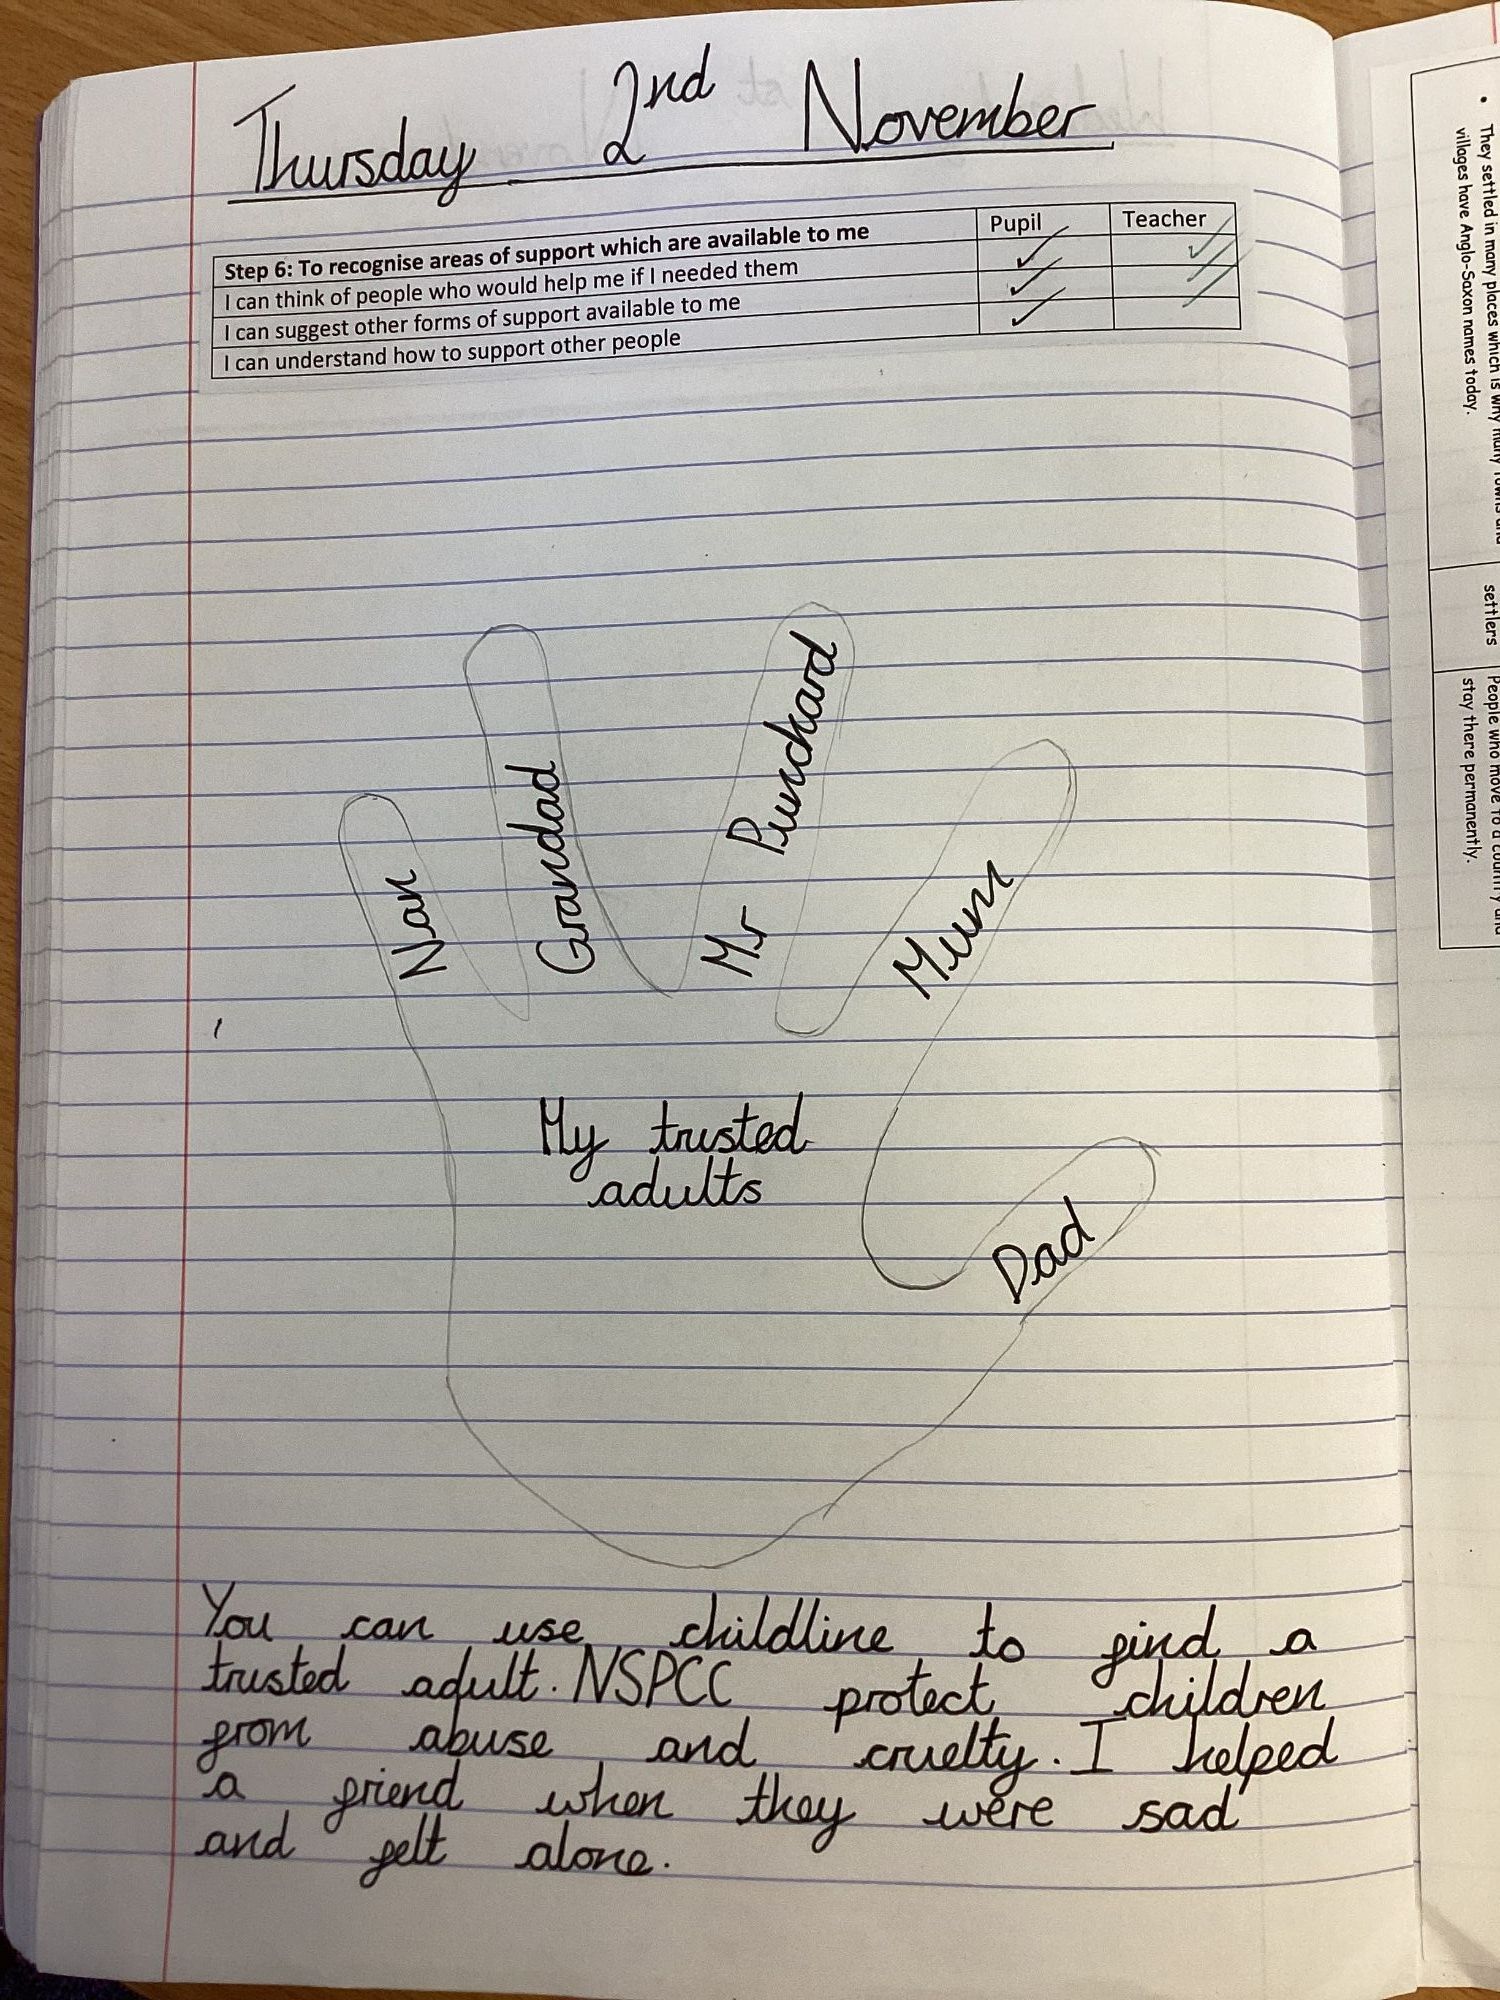 Thursday 2nd November
Step 6: To recognise areas of support which are available to me Pupil Teacher
I can think of people who would help me if I needed them
I can suggest other forms of support available to me
I can understand how to support other people
Nan
Grandad
Mr Punchard
Mum
Dad
My trusted
adults
You can use childline to find a
trusted adult. NSPCC protect children
from abuse and cruelty. I helped
a friend when they were sad
and felt alone.
They settled in many places which is why many towns and
villages have Anglo-Saxon names today.
settlers
People who move to a country and
stay there permanently.